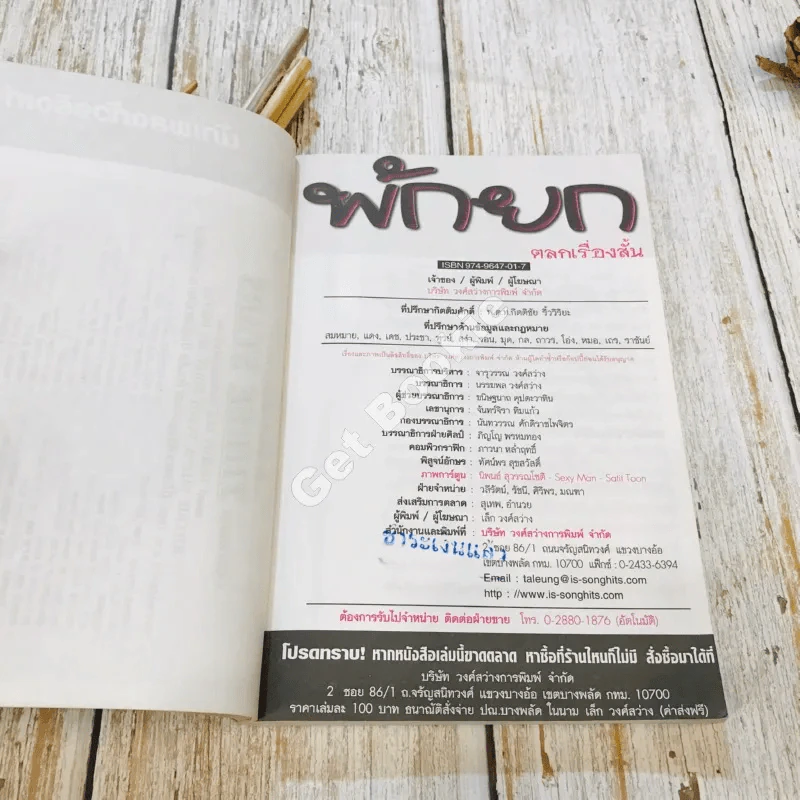 พักยก
ตลกเรื่องสั้น
ISBN 974-9647-01-7
เจ้าของ / ผู้พิมพ์ / ผู้โฆษณา
บริษัท วงศ์สว่างการพิมพ์ จำกัด
ที่ปรึกษากิตติมศักดิ์ : พ.ต.ท.กิตติชัย
ที่ปรึกษาด้านข้อมูลและกฎหมาย
สมหมาย, แดง, เดช, ประชา, จอน, มุด, กล, ถาวร, โอ่ง, หมอ, เถร, ราชันย์
บรรณาธิการบริหาร : จารุวรรณ วงศ์สว่าง
บรรณาธิการ : นรรมพล วงศ์สว่าง
ผู้ช่วยบรรณาธิการ : ชนิษฐนาถ คุปตะวาทิน
เลขานุการ : จันทร์จิรา ทิมแก้ว
กองบรรณาธิการ : นันทวรรณ ศักดิราชไพจิตร
บรรณาธิการฝ่ายศิลป์ : ภิญโญ พรหมทอง
คอมพิวกราฟิก : ภาวนา หล่ำฤทธิ์
พิสูจน์อักษร : ทัศน์พร สุขสวัสดิ์
ภาพการ์ตูน : นิพนธ์ สุวรรณโชติ - Sexy Man - Satit Toon
ฝ่ายจำหน่าย : วลีรัตน์, รัชนี, ศิริพร, มณฑา
ส่งเสริมการตลาด : สุเทพ, อำนวย
ผู้พิมพ์ / ผู้โฆษณา : เล็ก วงศ์สว่าง
สำนักงานและพิมพ์ที่ : บริษัท วงศ์สว่างการพิมพ์ จำกัด
2 ซอย 86/1 ถนนจรัญสนิทวงศ์ แขวงบางอ้อ
ชำระเงินแล้ว
เขตบางพลัด กทม. 10700 แฟ็กซ์ : 0-2433-6394
Email : taleung@is-songhits.com
http : //www.is-songhits.com
ต้องการรับไปจำหน่าย ติดต่อฝ่ายขาย โทร. 0-2880-1876 (อัตโนมัติ)
โปรดทราบ! หากหนังสือเล่มนี้ขาดตลาด หาซื้อที่ร้านไหนก็ไม่มี สั่งซื้อมาได้ที่
บริษัท วงศ์สว่างการพิมพ์ จำกัด
2 ซอย 86/1 ถ.จรัญสนิทวงศ์ แขวงบางอ้อ เขตบางพลัด กทม. 10700
ราคาเล่มละ 100 บาท ธนาณัติสั่งจ่าย ปณ.บางพลัด ในนาม เล็ก วงศ์สว่าง (ค่าส่งฟรี)
Get Bookie